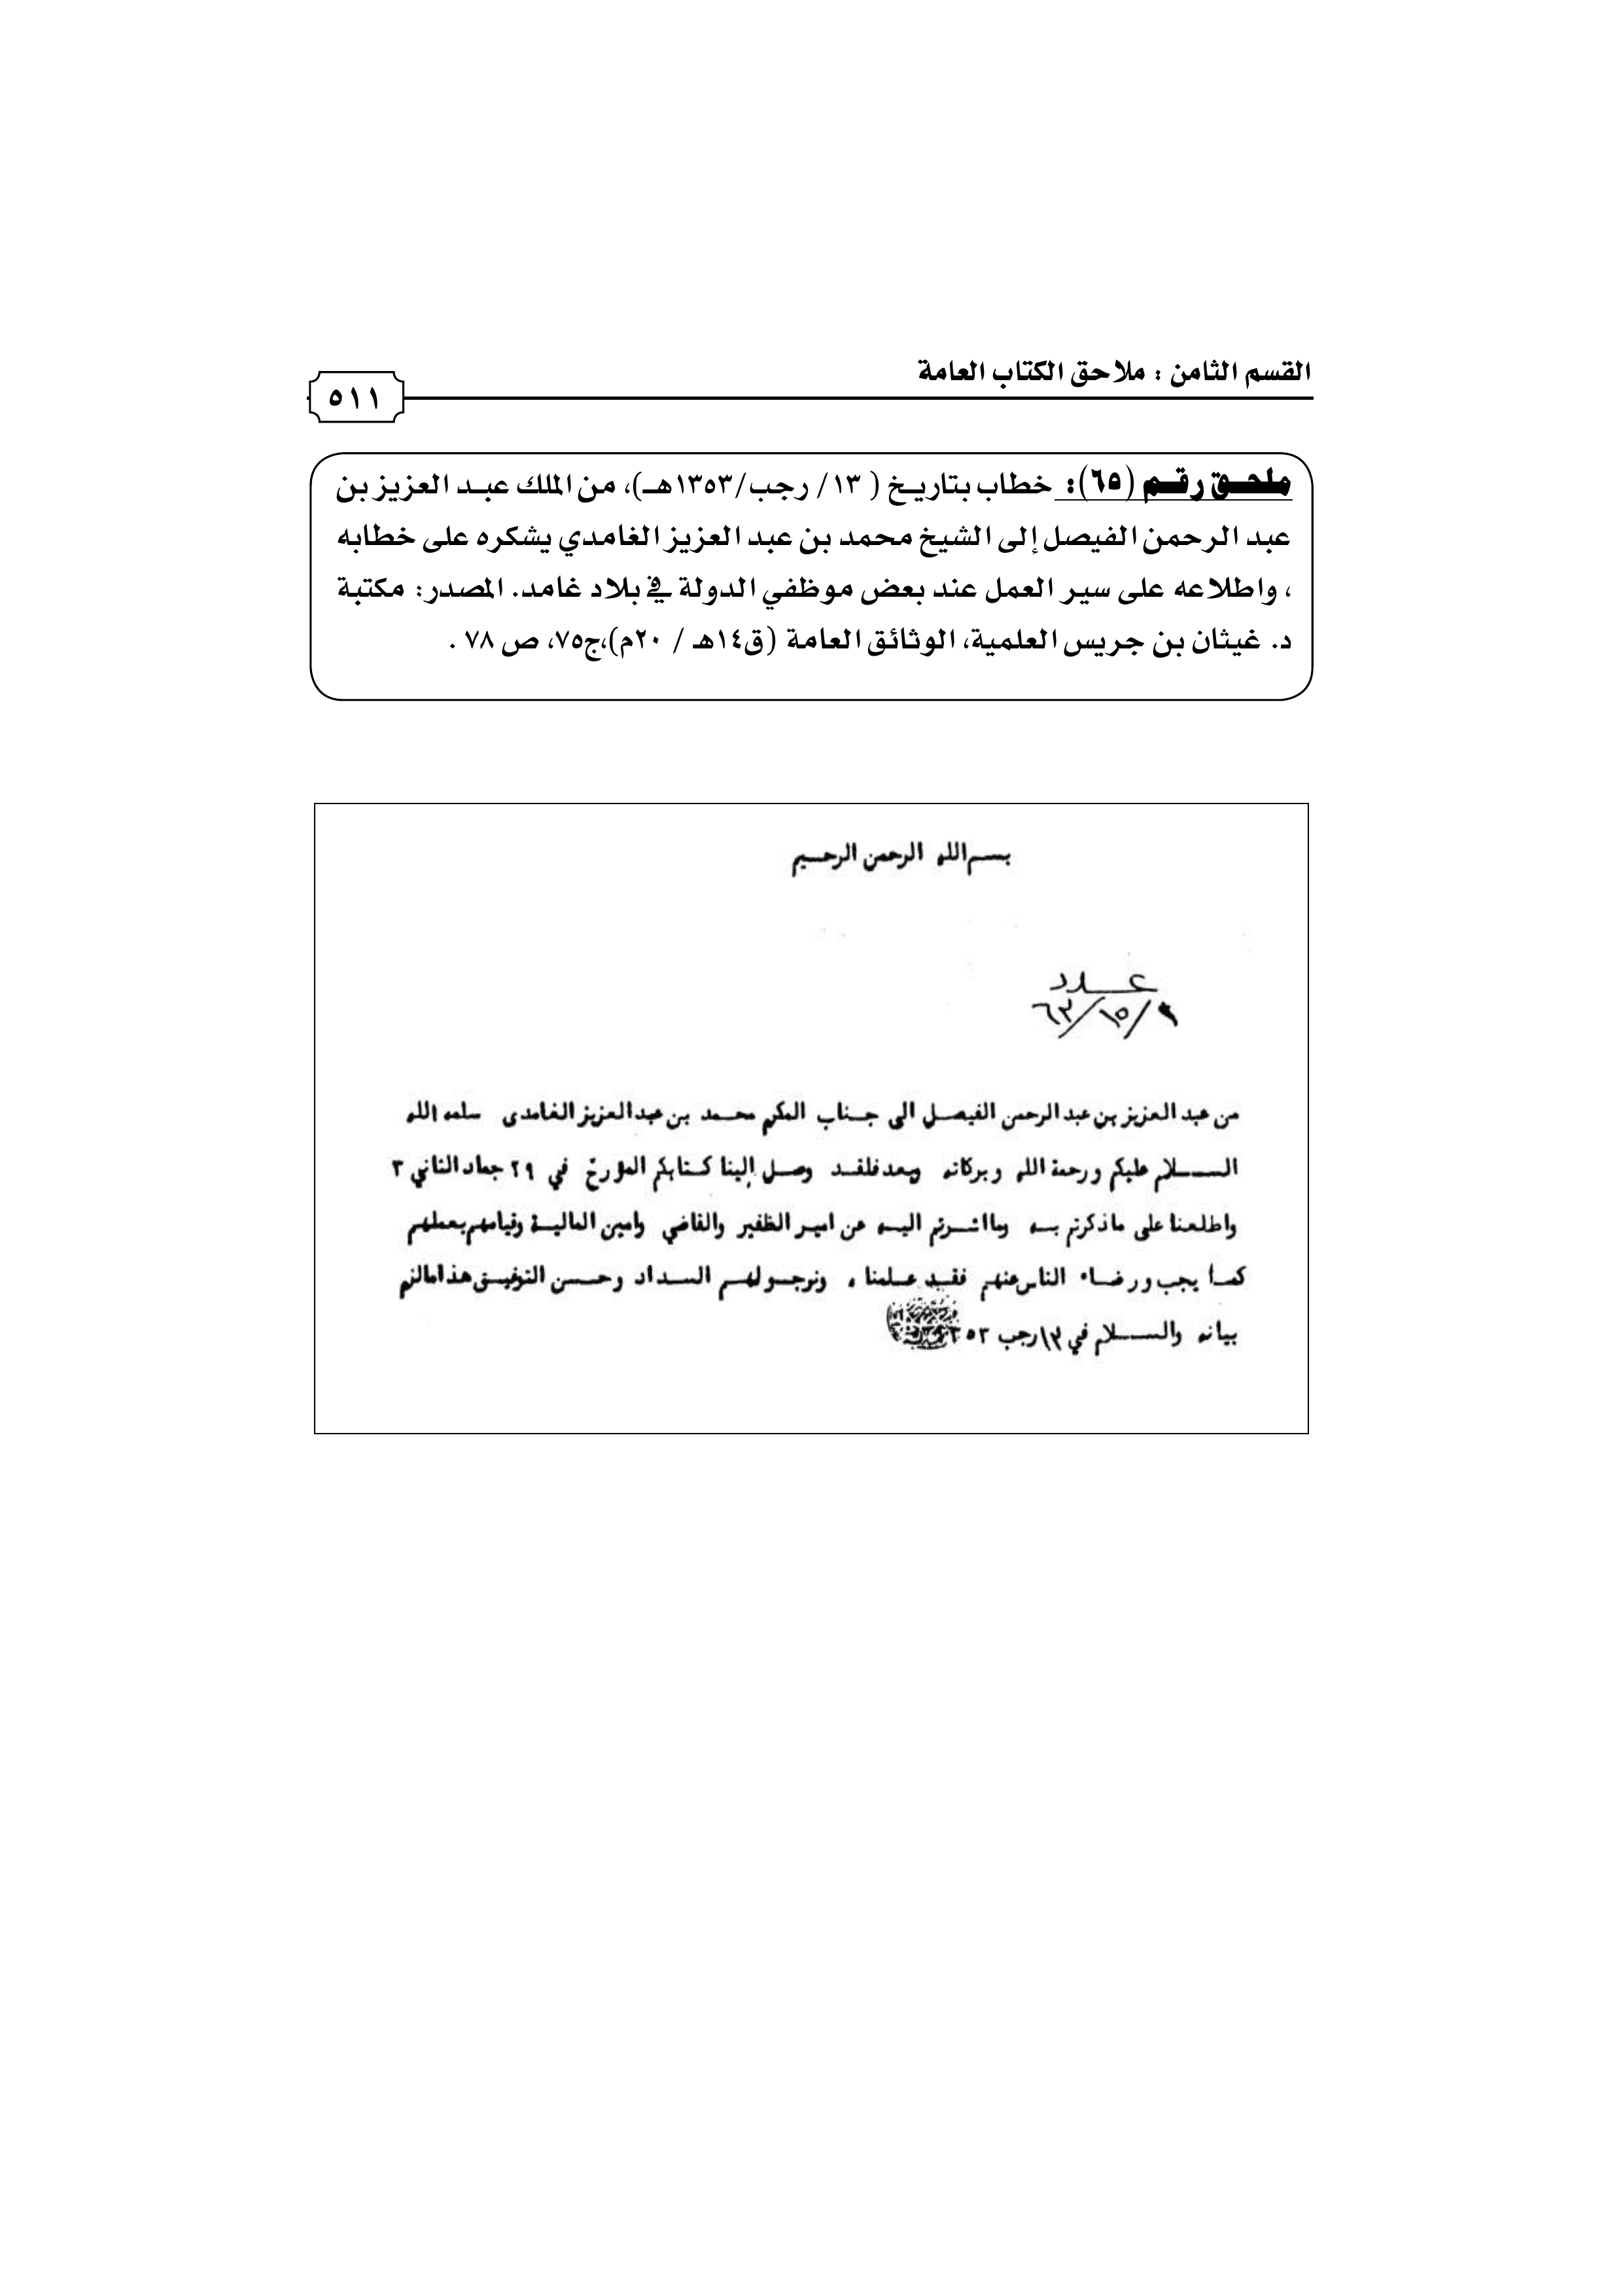 القسم الثامن : ملاحق الكتاب العامة
٥١١
ملحق رقم (٦٥): خطاب بتاريخ ( ١٣/ رجب/١٣٥٣هـ)، من الملك عبد العزيز بن
عبد الرحمن الفيصل إلى الشيخ محمد بن عبد العزيز الغامدي يشكره على خطابه
، واطلاعه على سير العمل عند بعض موظفي الدولة في بلاد غامد. المصدر: مكتبة
د. غيثان بن جريس العلمية، الوثائق العامة (ق١٤هـ / ٢٠م)،ج٧٥، ص ٧٨ .
بسم الله الرحمن الرحيم
عدد
من عبد العزيز بن عبد الرحمن الفيصل الى جناب المكرم محمد بن عبد العزيز الغامدى سلمه الله
السلام عليكم ورحمة الله وبركاته وبعد فلقد وصل إلينا كتابكم المؤرخ في ٢٩ جماد الثاني ٣
واطلعنا على ما ذكرتم به وما اشرتم اليه عن امير الظفير والقاضي وامين المالية وقيامهم بعملهم
كما يجب ورضاء الناس عنهم فقد علمنا ، ونرجو لهم السداد وحسن التوفيق هذا مالزم
بيانه والسلام في ١٣ رجب ٥٣